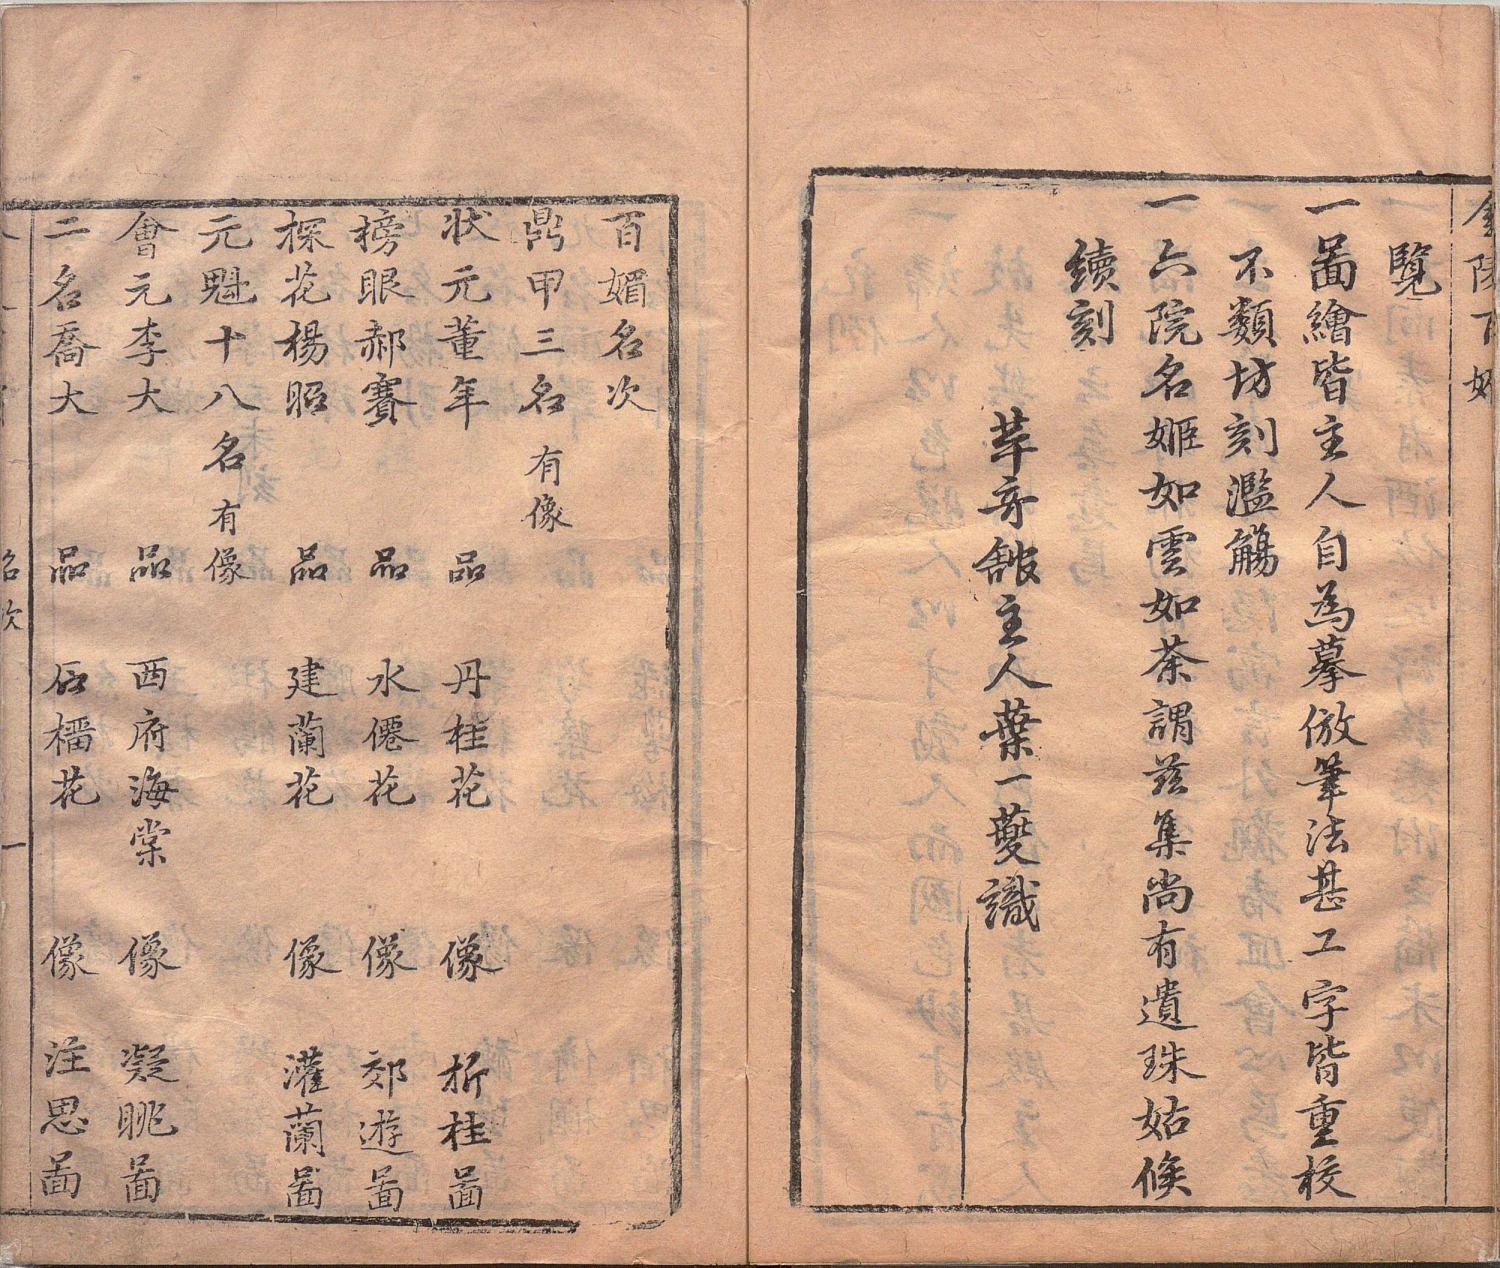 覽
一啚繪皆主人自為摹倣筆法甚工字皆重校
不類坊刻濫觴
一六院名姬如雲如荼謂茲集尚有遺珠姑候
續刻
主人葉一夔識
百媚名次
鼎甲三名有像
狀元董年 品 丹桂花 像 折桂啚
榜眼郝賽 品 水僊花 像 郊遊啚
探花楊昭 品 建蘭花 像 灌蘭啚
元魁十八名有像
會元李大 品 西府海棠 像 凝眺啚
二名喬大 品 花 像 注思啚
名次 一